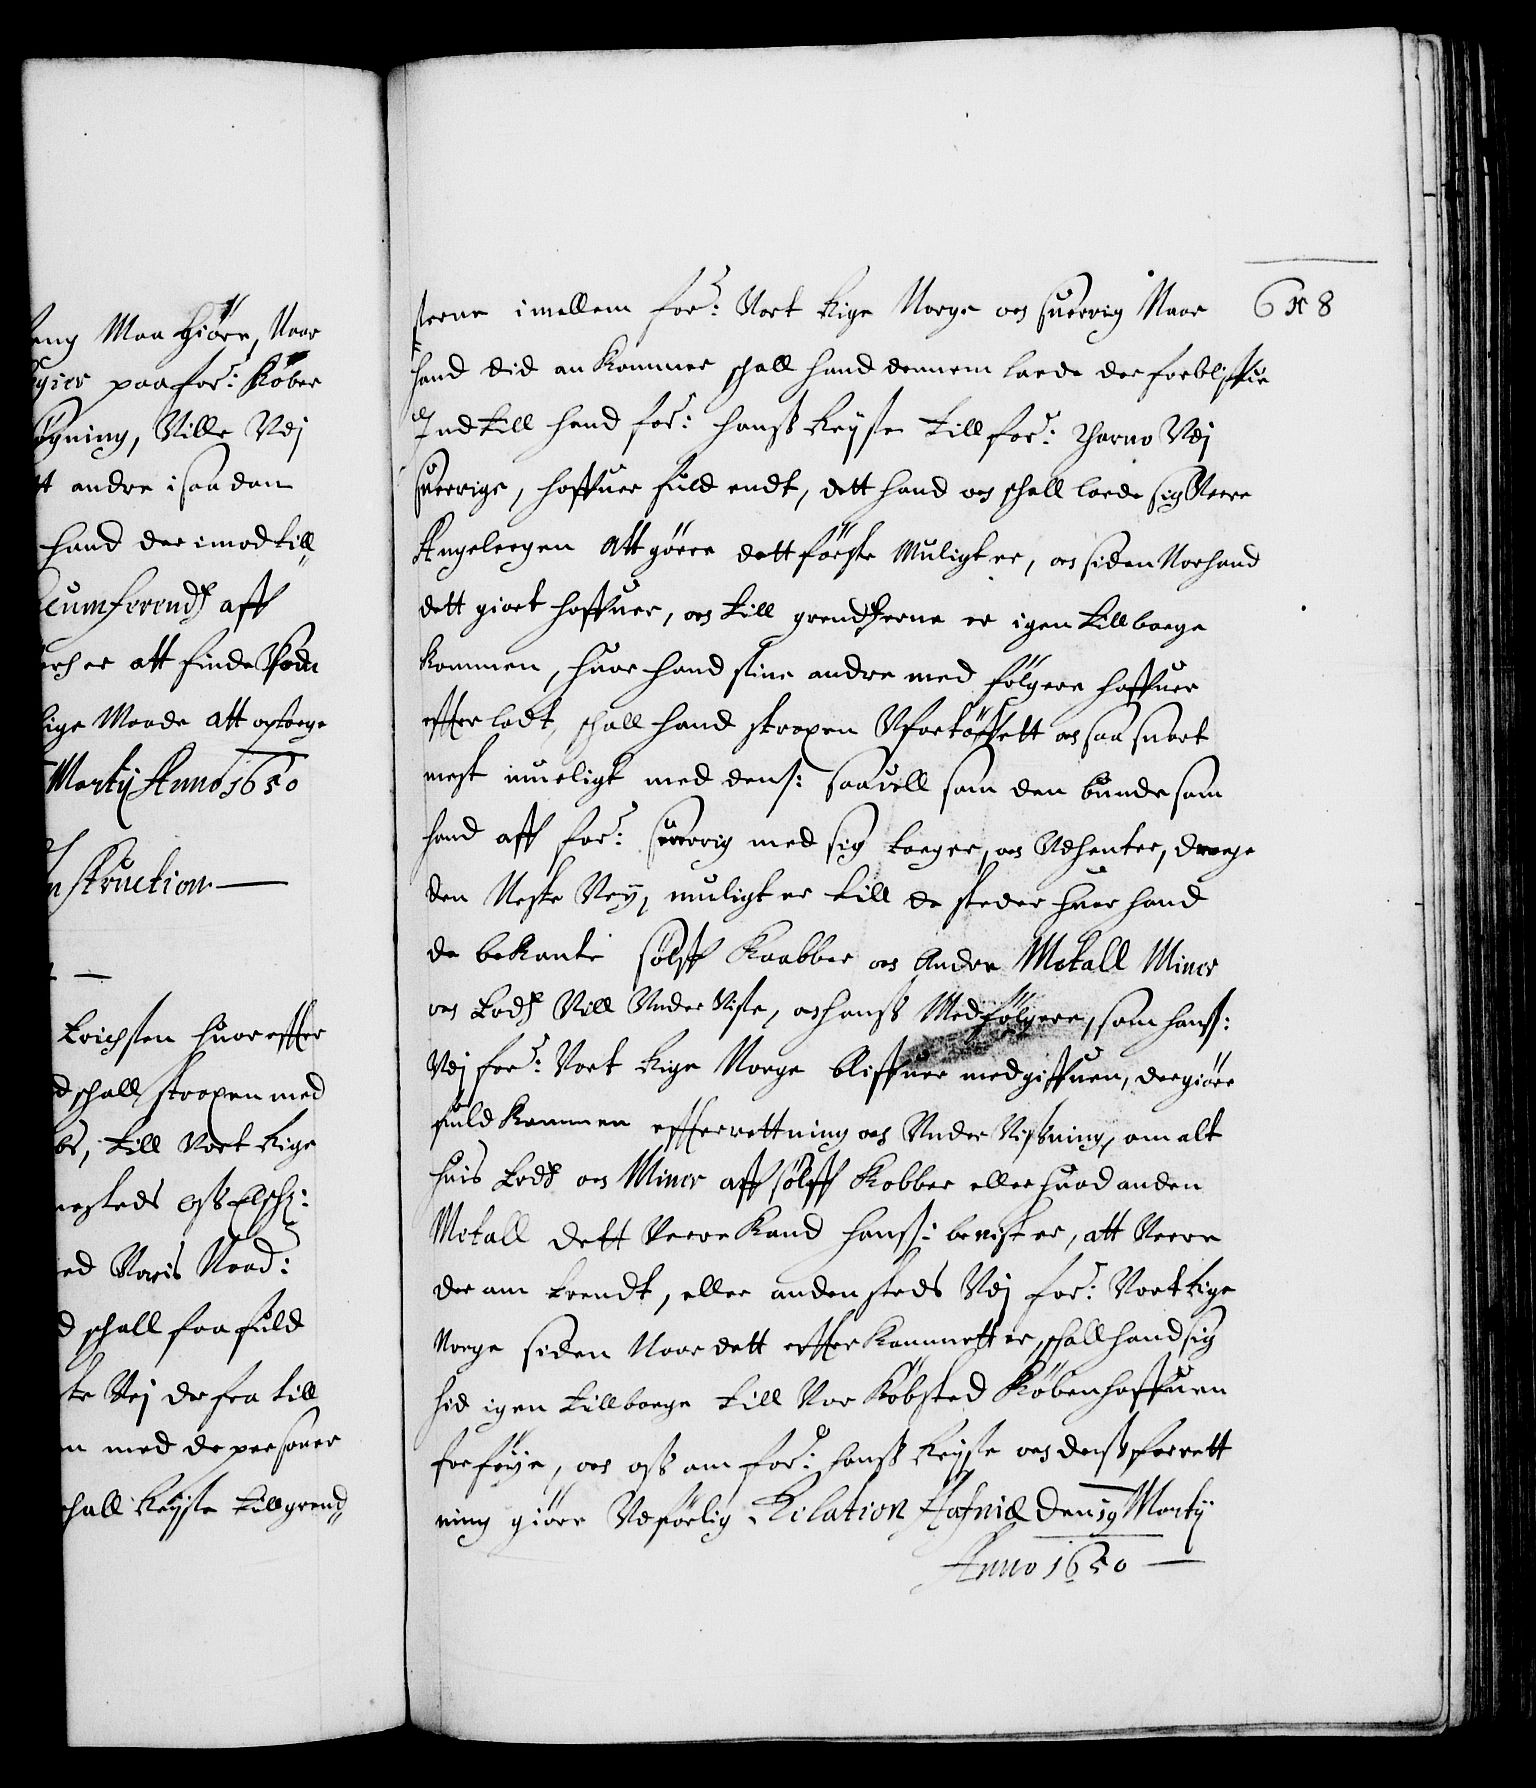 eng Maa Giöre, Naar
gier paa for: Kober
ögning, Ville Vdj
tt andre i saadan
hand der imod till
cumferendtz aff
att finde
lige Maade att optage
Martij Anno 1650
nstruction
Erichsen huor effter
d schall straxen med
till Vort Rige
nesteds oss Elsch:
ed Voris Naad:
d schall faa fuld
te Vdj der fra till
n med de personer
schall Reyse till grend
658
serne imellem for: Vort Rige Norge och Suerrig Naar
hand did ankommer schall hand dennem laade der forbliffue
Ind till hand for: hans Reyse till for: Vdj
Suerrige, haffuer fuldendt, dett hand och schall laade sig Verre
Angelegen att görre dett förste Muligt er, och siden Nor hand
dett giort haffuer, och till grendtzerne er igen tillbage
kommen, huor hand sine andre med fölgere haffuer
effterladt, schall hand straxen Vfortöffuett och saa snart
mest mueligt med dens: saauell som den bunde som
hand aff for: Suerrig med sig tager, och Vdhenter, drage
den Neste Vey, muligt er till de steder huor hand
de bekante Sölff Kaabber och Andre Metall Miner
och Vill Vnder Vise, och hans Medfölgere, som hans:
Vdj for: Vort Rige Norge bliffuer medgiffuen, der giöre
fuldkommen effterrettning och Vnder Visning, om alt
huis och Miner aff sölff Kobber eller huad anden
Metall dett Verre Kand hans: beuist er, att Verre
der om trendt, eller andensteds Vdj for: Vort Rige
Norge siden Naar dett effterkommett er, schall hand sig
hid igen tillbage till Vor Köbsted Köbenhaffuen
forföye, och oss om for: hans Reyse och dens forrett
ning giöre Vdförlig Relation Hafniæ den 19 Martij
Anno 1650